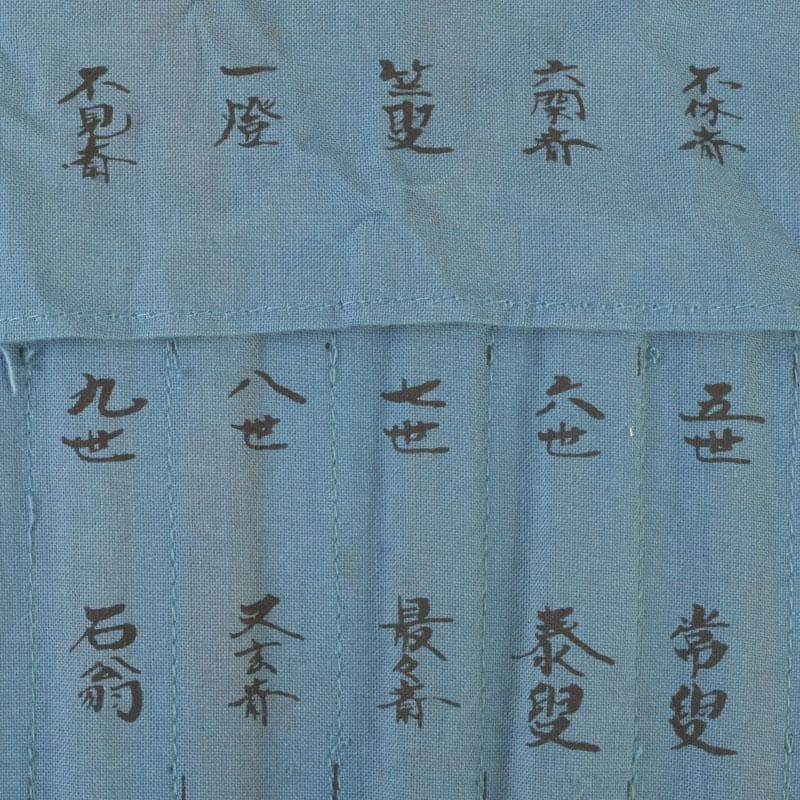 不休斎
六閑斎
竺叟
一燈
不見斎
五世 常叟
六世 泰叟
七世 最々斎
八世 又玄斎
九世 石翁